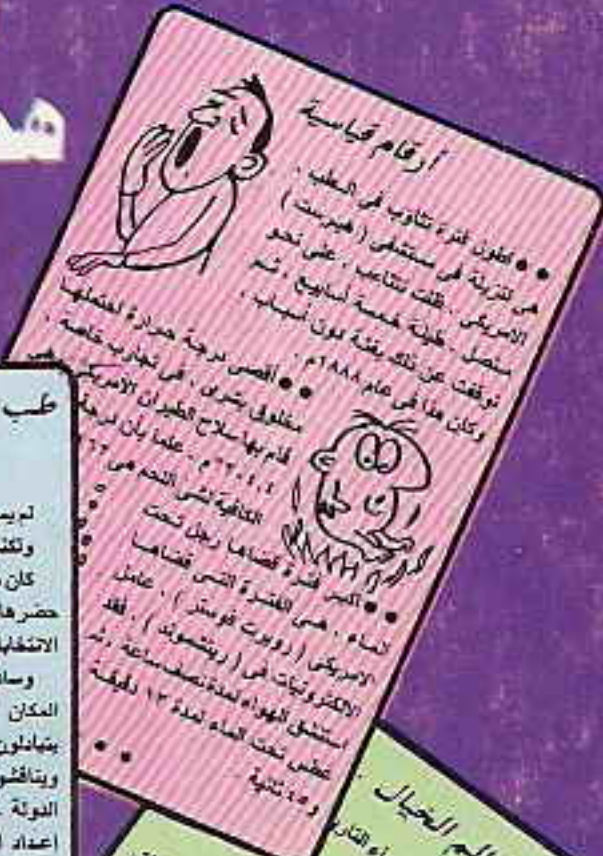 هذ
أرقام قياسية
●● أطول فترة تثاوب في الطب ،
هى لنزيلة فى مستشفى ( هيرست )
الأمريكى . ظلت تتثاءب ، على نحو
متصل ، طيلة خمسة أسابيع ، ثم
توقفت عن ذلك بغتة دون أسباب ،
وكان هذا فى عام ١٨٨٨م .
●● أقصى درجة حرارة احتملها
مخلوق بشرى ، فى تجارب خاصة ،
قام بها سلاح الطيران الأمريكى ، هى
٢٠٤,٤°م ، علما بأن درجة
الكافية لشى اللحم هى
●● أكبر فترة قضاها رجل تحت
الماء ، هى الفترة التى قضاها
الأمريكى ( روبرت فوستر ) ، عامل
الالكترونيات فى ( ريتشموند ) ، فقد
استنشق الهواء لمدة نصف ساعة ، ثم
غطس تحت الماء لمدة ١٣ دقيقة
و ٤٥ ثانية .
●●
طب
لم يس
ولكنه
كان
حضرها
الانتخابا
وساد
المكان
يتبادلون
ويناقشو
الدولة .
اعداد ا
الم الخيال